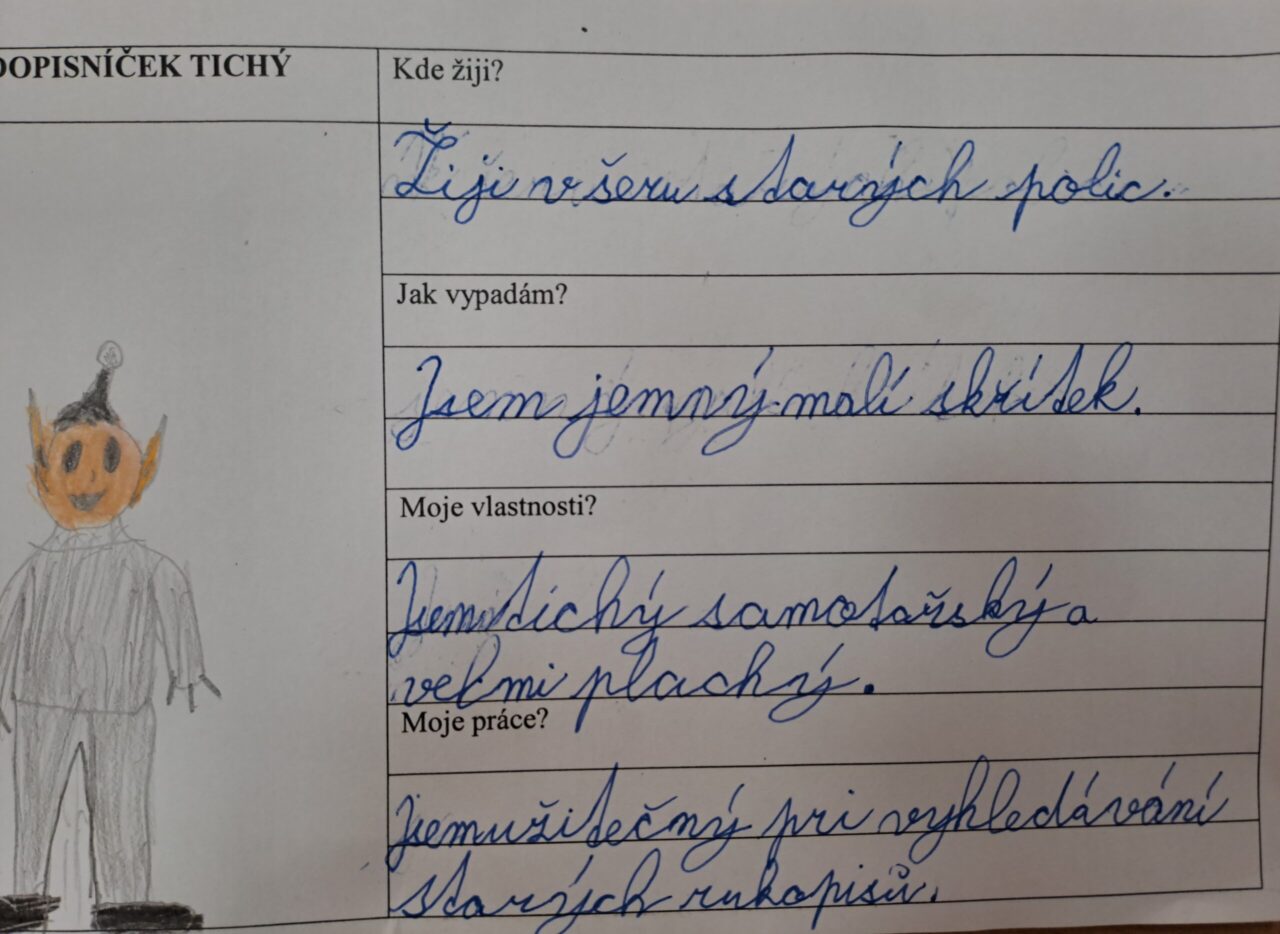 DOPISNÍČEK TICHÝ
Kde žiji?
Žiji v šeru starých polic.
Jak vypadám?
Jsem jemný malí skřítek.
Moje vlastnosti?
Jsem tichý samotařský a
velmi plachý.
Moje práce?
jsem užitečný pri vyhledávání
starých rukopisů.